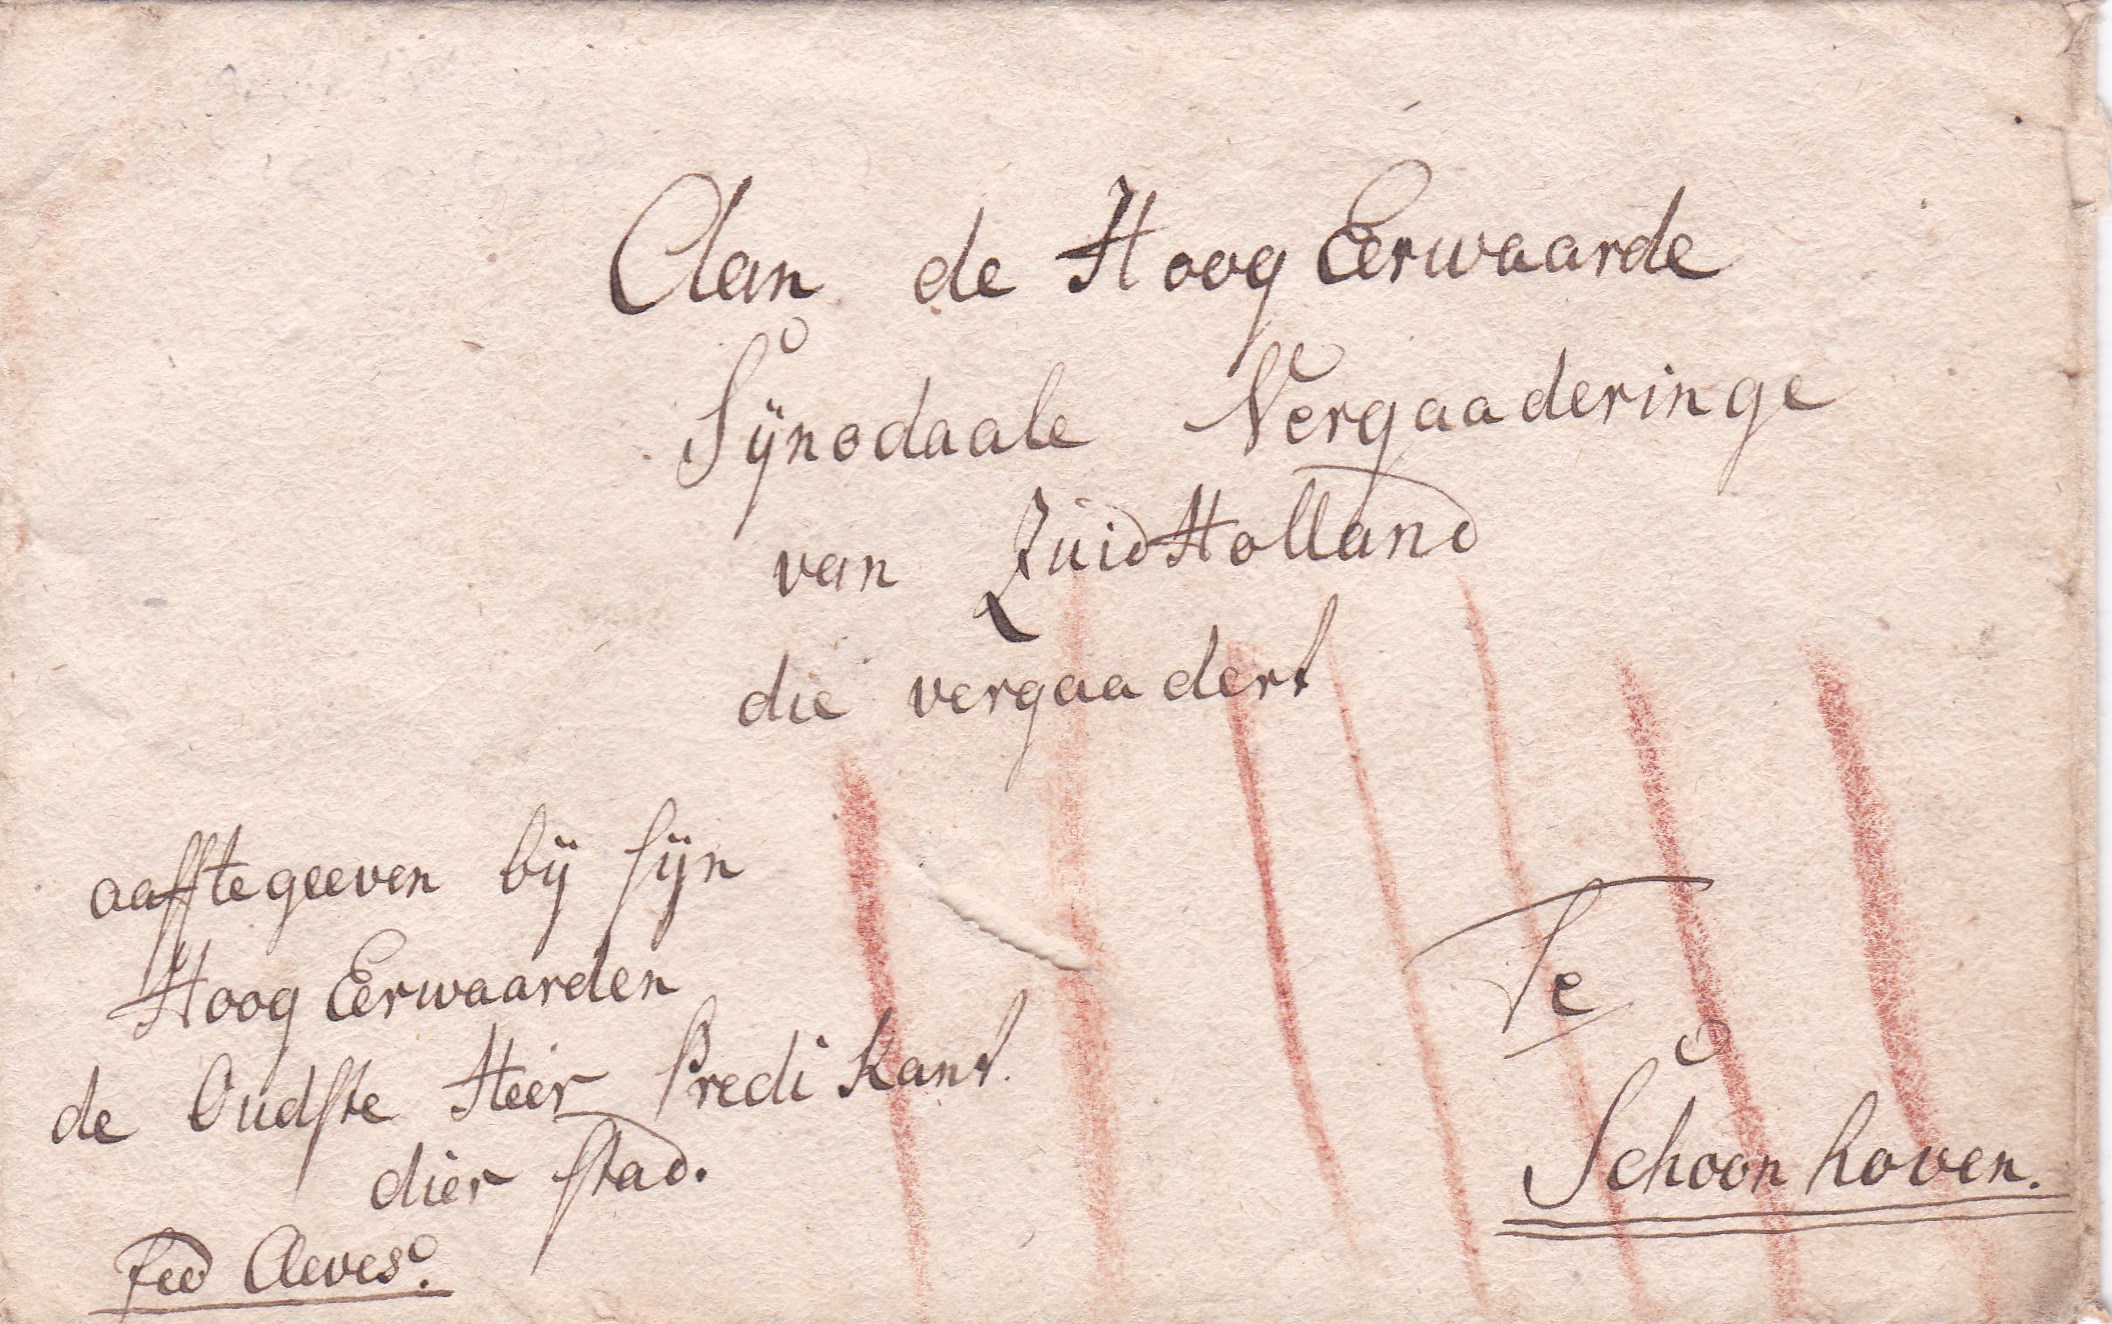 Aan de Hoog Eerwaarde
Sÿnodaale Vergaaderinge
van ZuidHolland
die vergaadert
aafftegeeven bÿ sÿn
Hoog Eerwaarden
de Oudste Heer Predikant
dier stad.
Te
Schoonhoven.